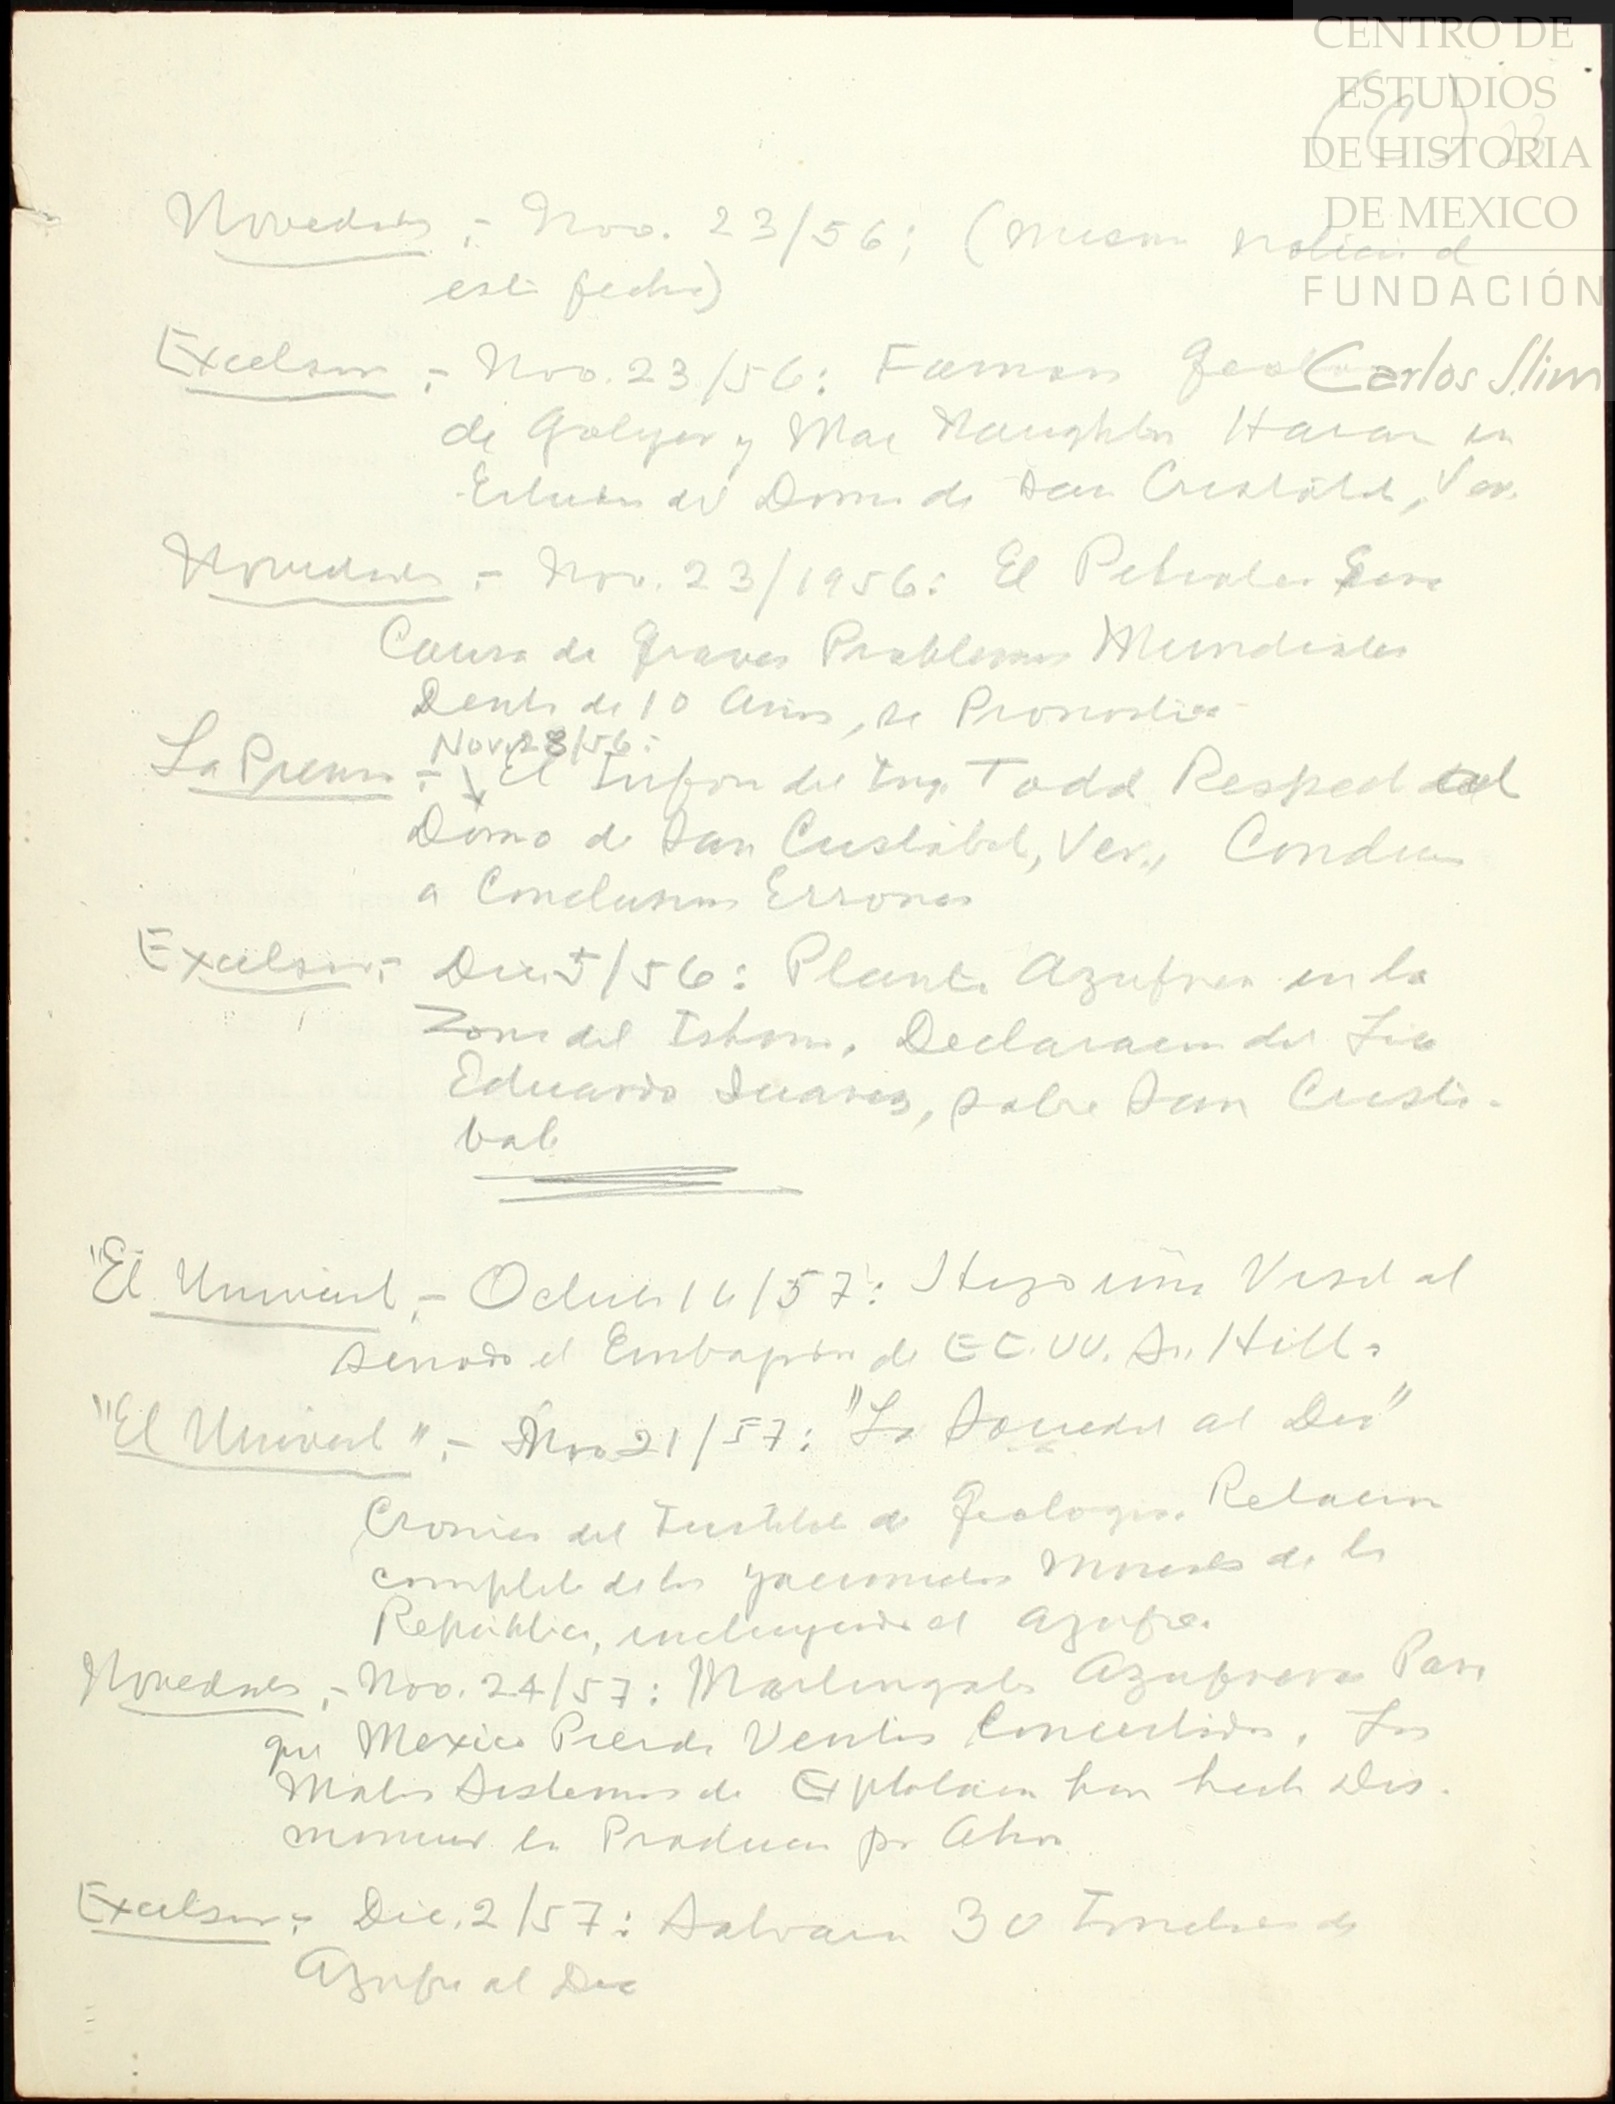 CENTRO DE
ESTUDIOS
DE HISTORIA
DE MEXICO
FUNDACIÓN
Carlos Slim
(C)
Novedades.- Nov. 23/56; (misma noticia d
esta fecha)
Excelsior.- Nov. 23/56: Famosos
de Golyer y Mac Naughton Haran un
Estudio del Domo de San Cristobal, Ver.
Novedades.- Nov. 23/1956: El Petroleo Sera
Causa de Graves Problemas Mundiales
Dentro de 10 Años, se Pronostica
Nov. 28/56:
La Prensa.- El Informe del Ing. Todd Respecto del
Domo de San Cristobal, Ver., Conduce
a Conclusiones Erroneas
Excelsior.- Dic. 5/56: Planta Azufrera en la
Zona del Istmo. Declaracion del Lic
Eduardo Suarez, sobre San Cristo-
bal
"El Universal.- Octubre 16/57: Hizo una Visita al
Senado el Embajador de EE.UU. Sr. Hill.
"El Universal".- Nov. 21/57: "La Sociedad al Dia"
Cronica del Instituto de Geologia. Relacion
completa de los yacimientos Minerales de la
Republica, incluyendo el azufre.
Novedades.- Nov. 24/57: Martingala Azufrera Para
que Mexico Pierda Ventas Concertadas. Los
Malos Sistemas de Explotacion han hecho Dis-
minuir la Produccion por Ahora
Excelsior.- Dic. 2/57: Salvaran 30 Toneladas de
Azufre al Dia